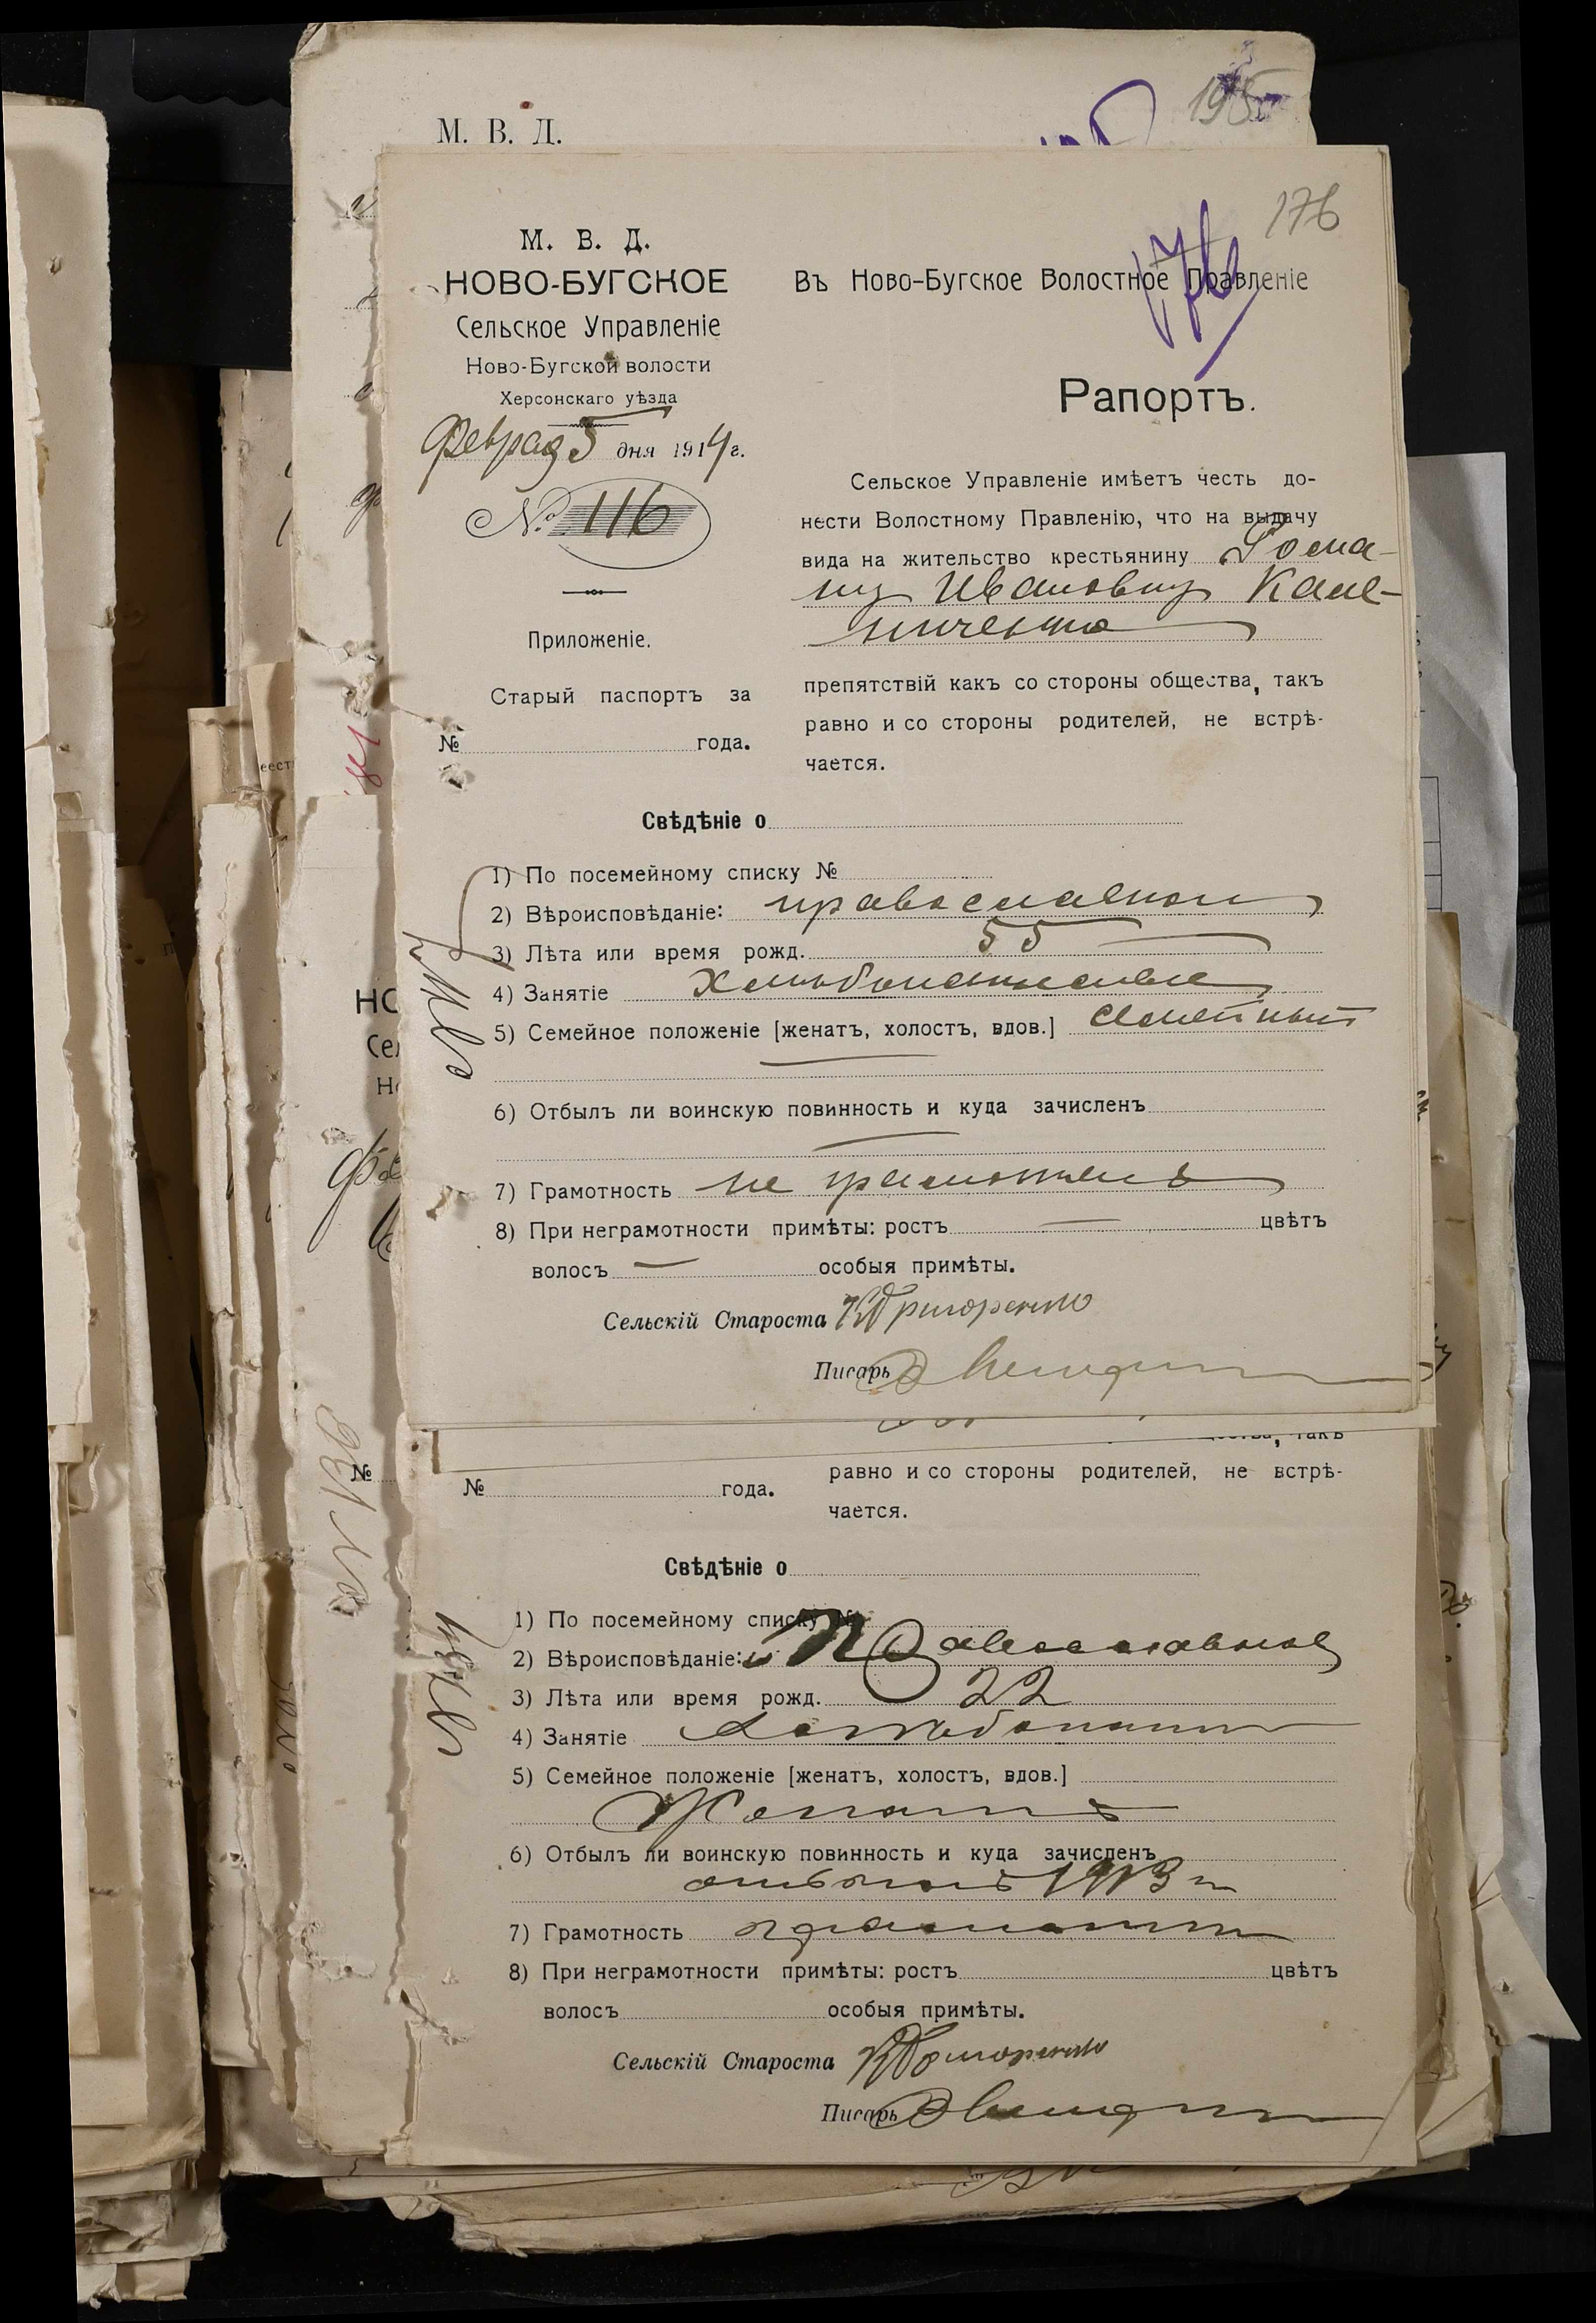 М. В. Д.
195
176
176
М. В. Д.
НОВО-БУГСКОЕ
Сельское Управленіе
Ново-Бугской волости
Херсонскаго уѣзда
Феврал 5 дня 1914 г.
№ 116
Приложеніе.
Старый паспортъ за
№ года.
Въ Ново-Бугское Волостное Правленіе
Рапортъ.
Сельское Управленіе имѣетъ честь до-
нести Волостному Правленію, что на выдачу
вида на жительство крестьянину Рома-
ну Ивановичу Кале-
ниченко
препятствій какъ со стороны общества, такъ
равно и со стороны родителей, не встрѣ-
чается.
Свѣдѣніе о
1) По посемейному списку №
2) Вѣроисповѣданіе: православнои
3) Лѣта или время рожд. 55
4) Занятіе
5) Семейное положеніе [женатъ, холостъ, вдов.] семейный
6) Отбылъ ли воинскую повинность и куда зачисленъ
7) Грамотность не грамотенъ
8) При неграмотности примѣты: ростъ цвѣтъ
волосъ особыя примѣты.
Сельскій Староста К Григоренко
Писарь
такъ
№ года.
равно и со стороны родителей, не встрѣ-
чается.
Свѣдѣніе о
1) По посемейному списку №
2) Вѣроисповѣданіе: Православное
3) Лѣта или время рожд. 22
4) Занятіе
5) Семейное положеніе [женатъ, холостъ, вдов.]
Женатъ
6) Отбылъ ли воинскую повинность и куда зачисленъ
отбылъ 1913 г
7) Грамотность грамотный
8) При неграмотности примѣты: ростъ цвѣтъ
волосъ особыя примѣты.
Сельскій Староста К Григоренко
Писарь